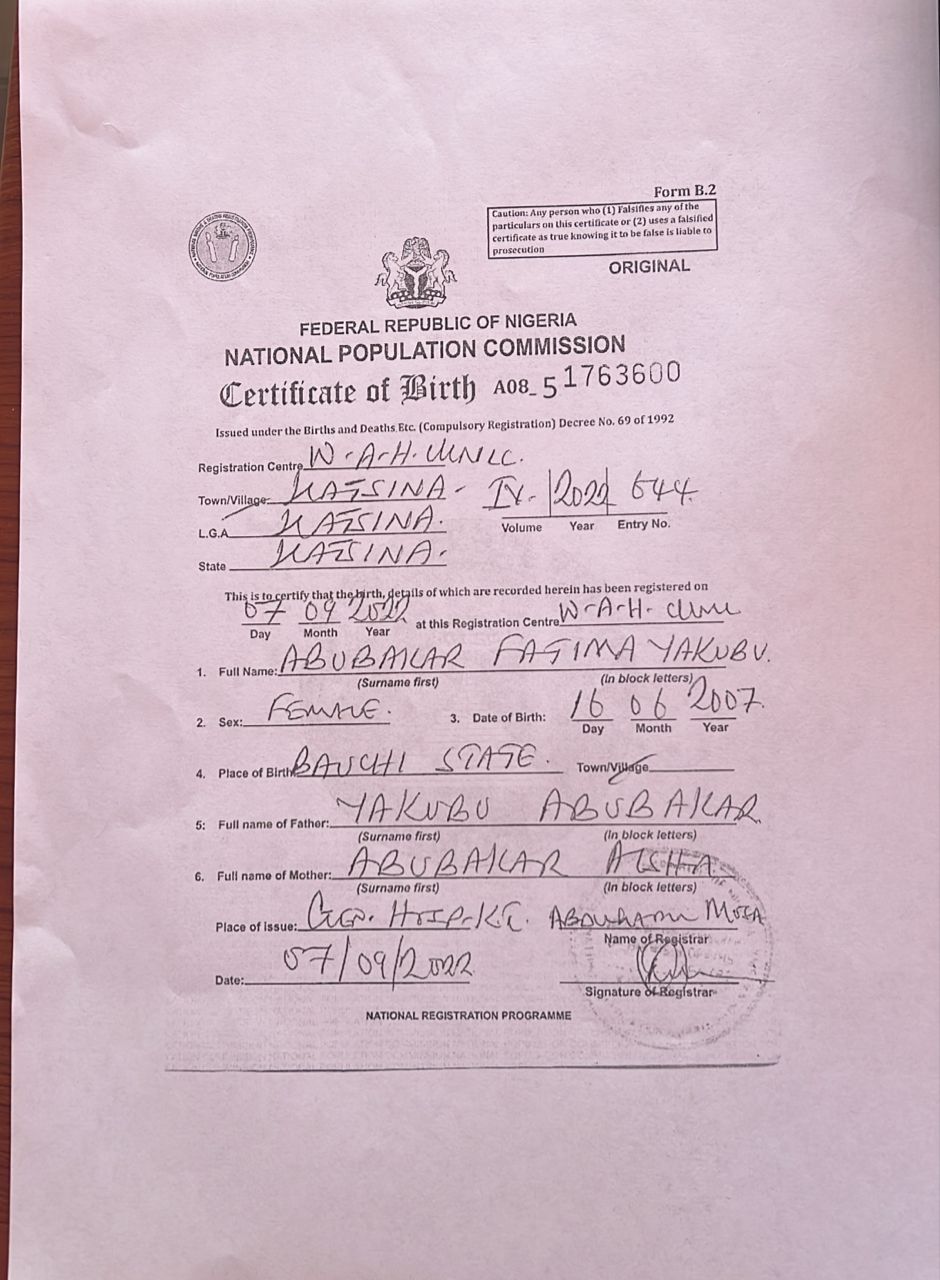 Form B.2
Caution: Any person who (1) Falsifies any of the
particulars on this certificate or (2) uses a falsified
certificate as true knowing it to be false is liable to
prosecution
ORIGINAL
FEDERAL REPUBLIC OF NIGERIA
NATIONAL POPULATION COMMISSION
Certificate of Birth A08_51763600
Issued under the Births and Deaths Etc. (Compulsory Registration) Decree No. 69 of 1992
Registration Centre W-A-H.
Town/Village: KATSINA- IV. 2022 644.
L.G.A KATSINA. Volume Year Entry No.
State KATSINA.
This is to certify that the birth, details of which are recorded herein has been registered on
07 09 2022 at this Registration Centre W-A-H-
Day Month Year
1. Full Name: ABUBAKAR FATIMA YAKUBU.
(Surname first) (In block letters)
2. Sex: FEMALE. 3. Date of Birth: 16 06 2007.
Day Month Year
4. Place of Birth BAUCHI STATE. Town/Village
5: Full name of Father: YAKUBU ABUBAKAR
(Surname first) (In block letters)
6. Full name of Mother: ABUBAKAR AISHA
(Surname first) (In block letters)
Place of Issue: Gen. Hosp-KT.
Name of Registrar
Date: 07/09/2022
Signature of Registrar
NATIONAL REGISTRATION PROGRAMME